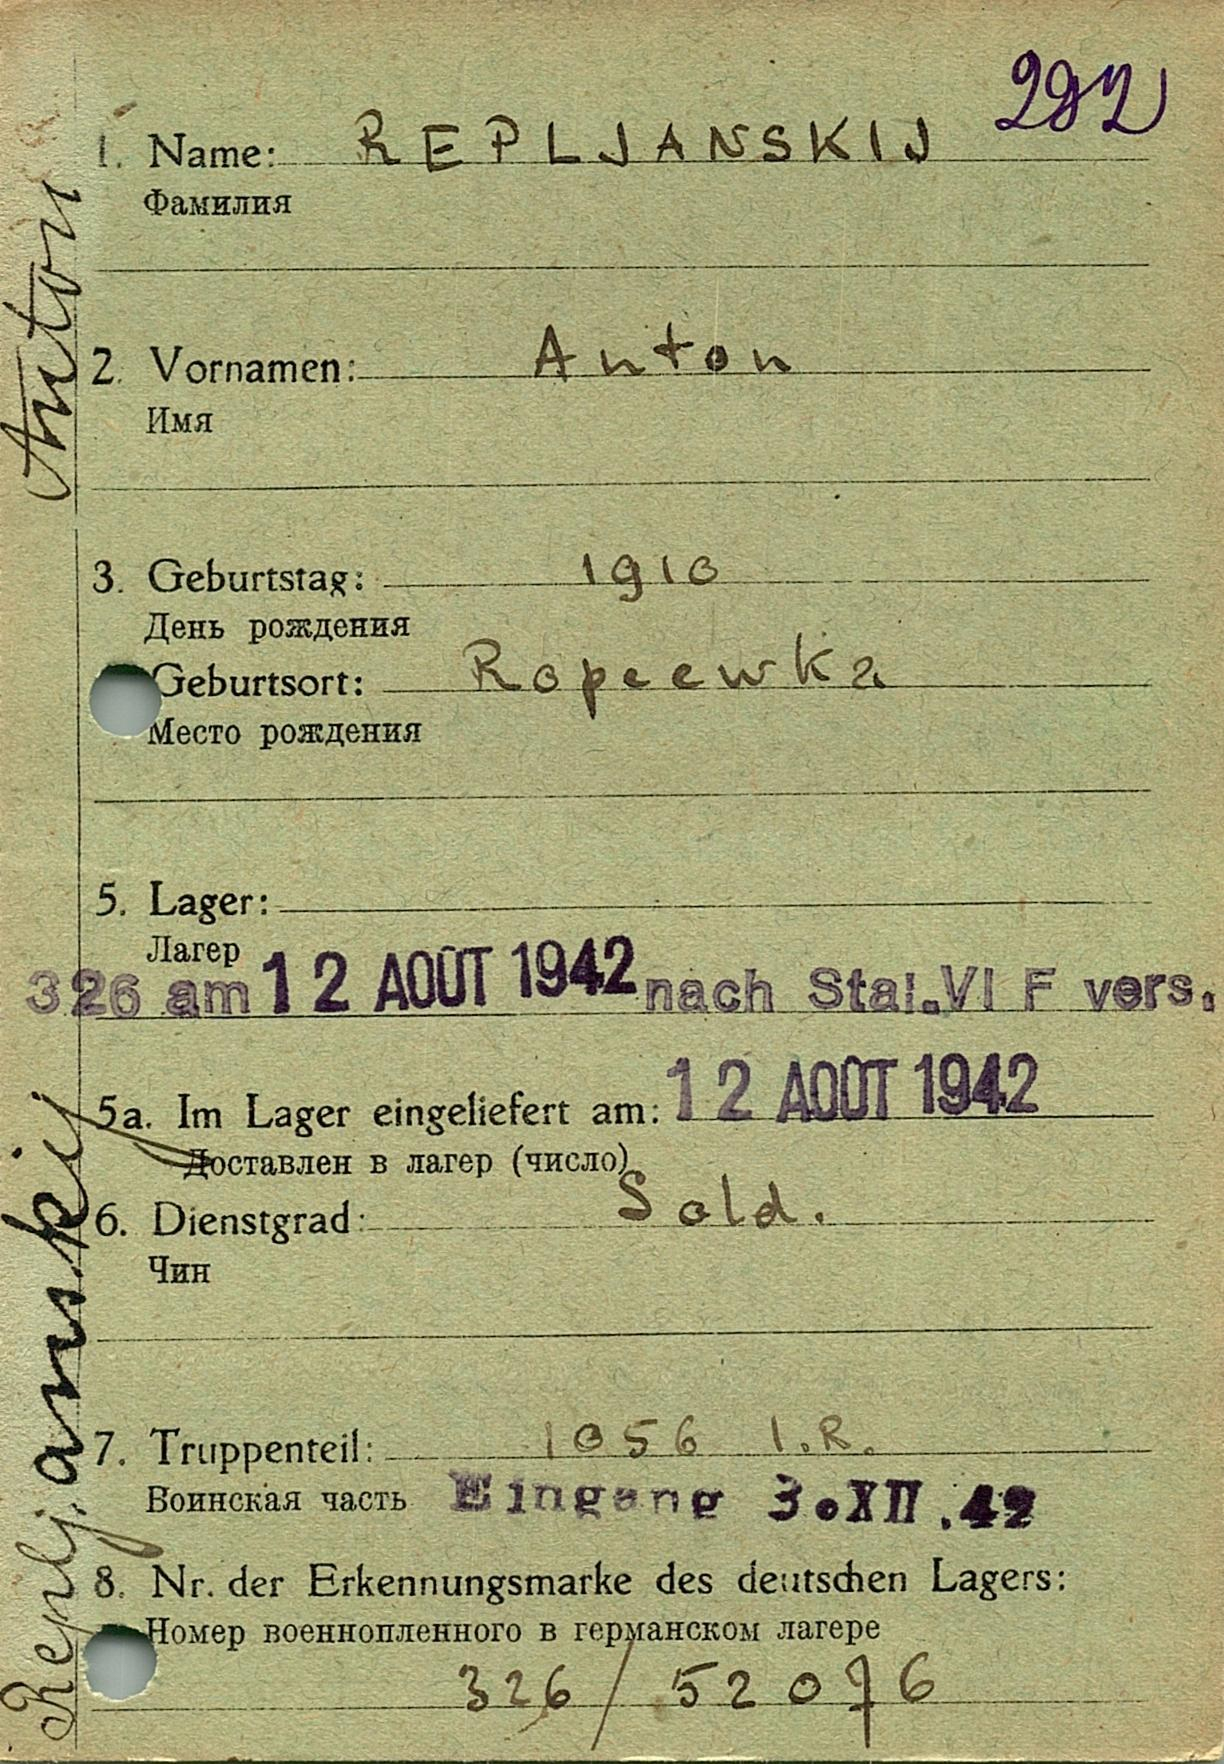 282
1. Name: REPLJANSKIJ
Фамилия
2. Vornamen: Anton
Имя
3. Geburtstag: 1910
День рождения
Geburtsort: Ropeewka
Место рождения
5. Lager:
Лагер
326 am 12 AOÛT 1942 nach Stal.VI F vers.
5a. Im Lager eingeliefert am: 12 AOÛT 1942
Доставлен в лагер (число)
6. Dienstgrad: Sold.
Чин
7. Truppenteil: 1056 I.R.
Воинская часть Eingang 3.XII.42
8. Nr. der Erkennungsmarke des deutschen Lagers:
Номер военнопленного в германском лагере
326/52076
Replj.anskij Anton